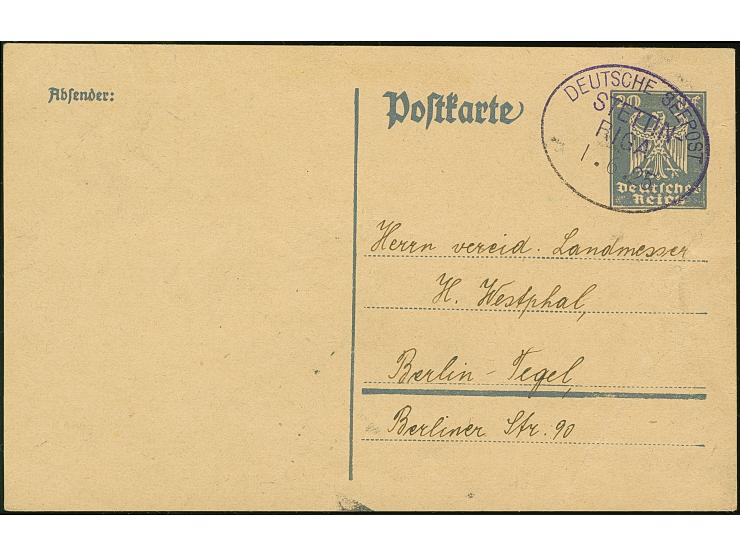 Absender:
Postkarte
DEUTSCHE SEEPOST
STETTIN-
RIGA
1.6.25
20 Pf
Deutsches
Reich
Herrn vereid. Landmesser
H. Westphal,
Berlin-Tegel,
Berliner Str. 90